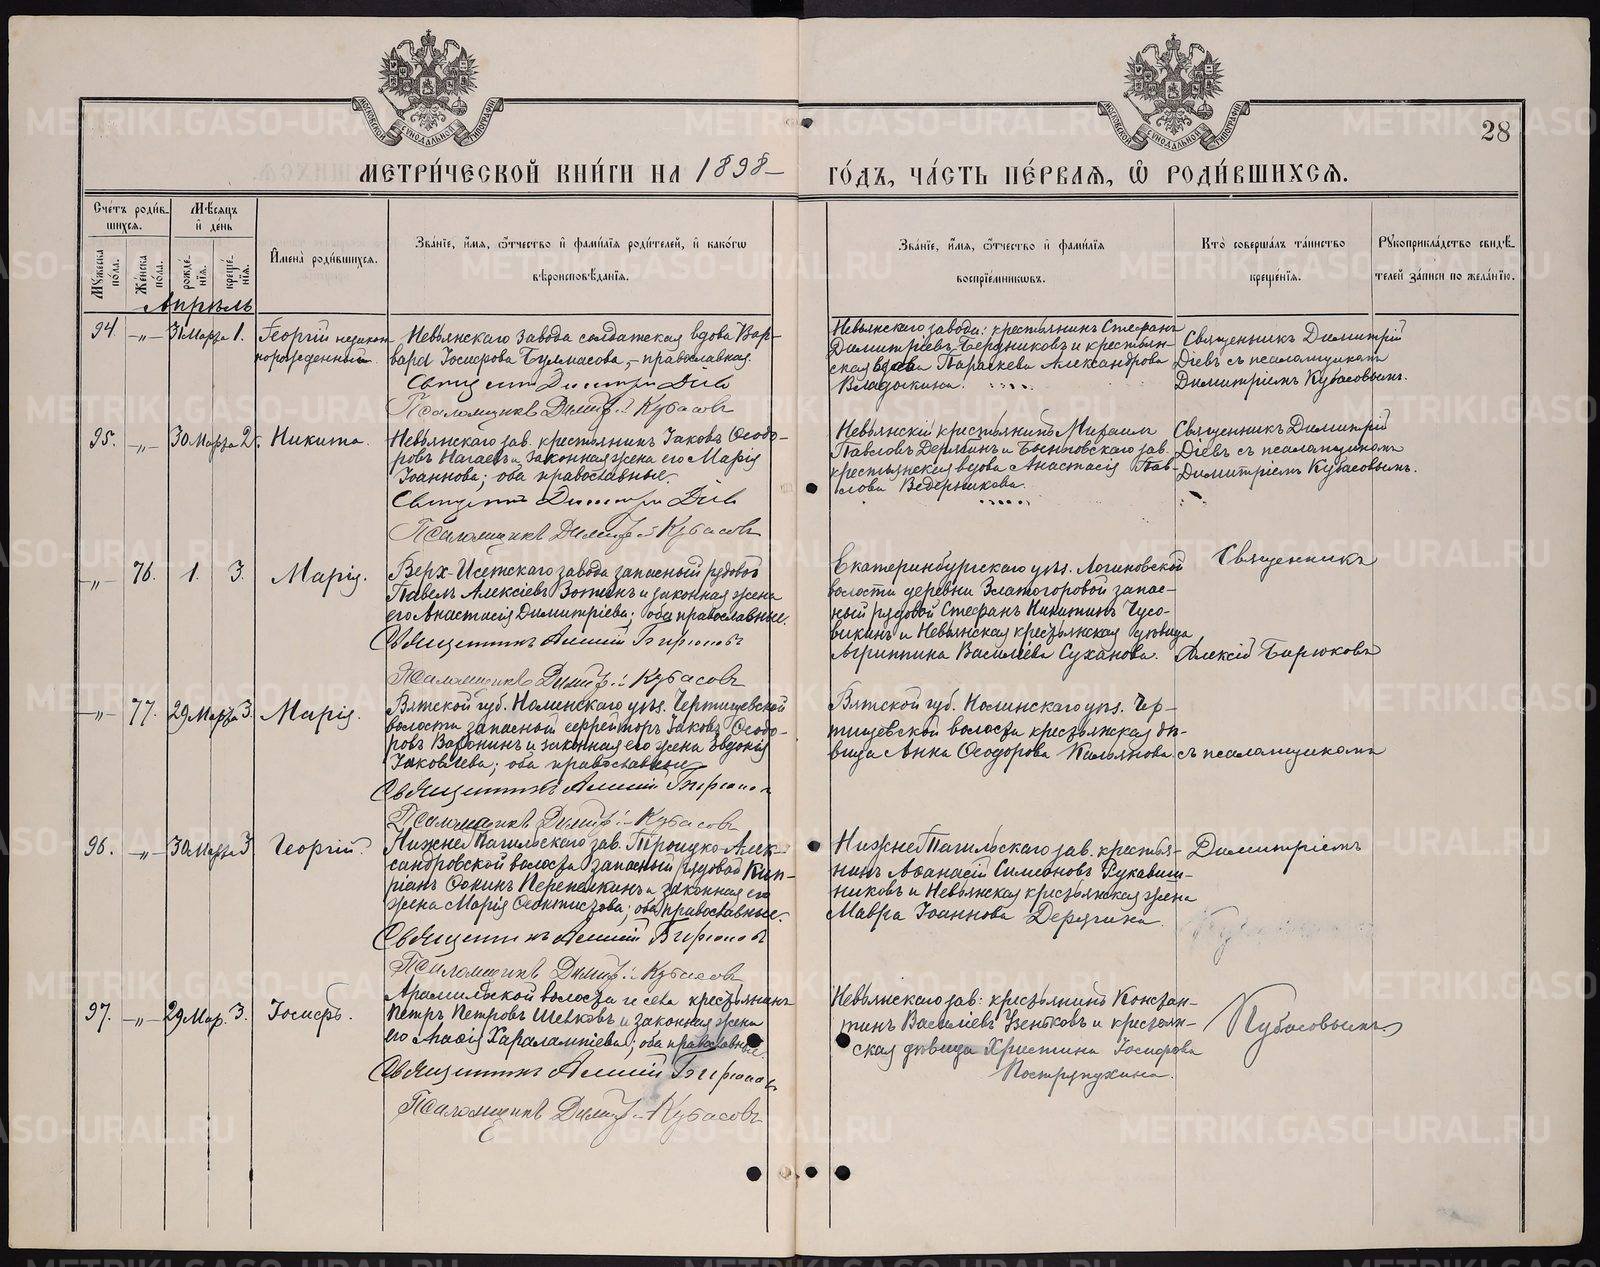 МЕТРИ́ЧЕСКОЙ КНИ́ГИ НА 1898 ГО́ДЪ, ЧА́СТЬ ПЕ́РВАЯ, Ѽ РОДИ́ВШИХСЯ.
28
Сче́тъ роди́в-
шихся.
Мѣ́сяцъ
и҆ де́нь
Мꙋжеска по́ла.
Же́нска по́ла.
рожде́нїѧ.
креще́нїѧ.
И҆мена̀ роди́вшихся.
Зва́нїе, и҆́мя, ѻ҆́тчество и҆ фами́лїя роди́телей, и҆ како́гѡ
вѣроисповѣ́данїя.
Зва́нїе, и҆́мя, ѻ҆́тчество и҆ фами́лїя
воспрїе́мниковъ.
Кто̀ соверша́лъ та́инство
креще́нїя.
Рꙋкоприкла́дство свидѣ́-
телей за́писи по жела́нїю.
Апрѣль
94. -„- 31 Марта 1. Георгій незакон-
норожденный
Невьянскаго Завода солдатская вдова Вар-
вара Іосифова; православная.
Псаломщикъ Димитрій Кубасовъ
Невьянскаго завода: крестьянинъ Стефанъ
Димитріевъ Бердниковъ и крестьян-
ская вдова Параскева Александрова
Владыкина.
Священникъ Димитрій
Діевъ съ псаломщикомъ
Димитріемъ Кубасовымъ.
95. -„- 30 Марта 2. Никита.
Невьянскаго зав. крестьянинъ Іаковъ Ѳеодо-
ровъ Нагаевъ и законная жена его Марія
Іоаннова; оба православные.
Псаломщикъ Димитрій Кубасовъ
Невьянскій крестьянинъ Михаилъ
Павловъ Дерябинъ и Быньговскаго зав.
крестьянская вдова Анастасія Пав-
лова Ведерникова.
Священникъ Димитрій
Діевъ съ псаломщикомъ
Димитріемъ Кубасовымъ.
-„- 76. 1. 3. Марія.
Верх-Исетскаго завода запасный рядовой
Павелъ Алексіевъ и законная жена
его Анастасія Димитріева; оба православные.
Священникъ Алексій Бирюковъ
Псаломщикъ Димитрій Кубасовъ
Екатеринбургскаго уѣз. Логиновской
волости деревни Златогоровой запас-
ный рядовой Стефанъ Никитинъ Чусо-
викинъ и Невьянская крестьянская дѣвица
Агриппина Василіева Суханова.
Священникъ
Алексій Бирюковъ
-„- 77. 29 Марта 3. Марія.
Вятской губ. Нолинскаго уѣз. Чертищевской
волости запасный ефрейторъ Іаковъ Ѳеодо-
ровъ Воронинъ и законная его жена Евдокія
Іаковлева; оба православные
Священникъ Алексій Бирюковъ
Псаломщикъ Димитрій Кубасовъ
Вятской губ. Нолинскаго уѣз. Чер-
тищевской волости крестьянская дѣ-
вица Анна Ѳеодорова
съ псаломщикомъ
96. -„- 30 Марта 3 Георгій.
Нижне Тагильскаго зав. Троицко-Алек-
сандровской волости запасный рядовой Кип-
ріанъ Ѳокинъ и законная его
жена Марія Ѳеоктистова; оба православные.
Священникъ Алексій Бирюковъ
Псаломщикъ Димитрій Кубасовъ
Нижне Тагильскаго зав. крестья-
нинъ Аѳанасій Симеоновъ Рукавиш-
никовъ и Невьянская крестьянская жена
Мавра Іоаннова Дерягина.
Димитріемъ
97. -„- 29 Мар. 3. Іосифъ.
Арамильской волости и села крестьянинъ
Петръ Петровъ Шевковъ и законная жена
его Харалампіева; оба православные.
Священникъ Алексій Бирюковъ
Псаломщикъ Димитрій Кубасовъ
Невьянскаго зав. крестьянинъ Констан-
тинъ Василіевъ и крестьян-
ская дѣвица Христина Іосифова
Постряпухина.
Кубасовымъ
METRIKI.GASO-URAL.RU